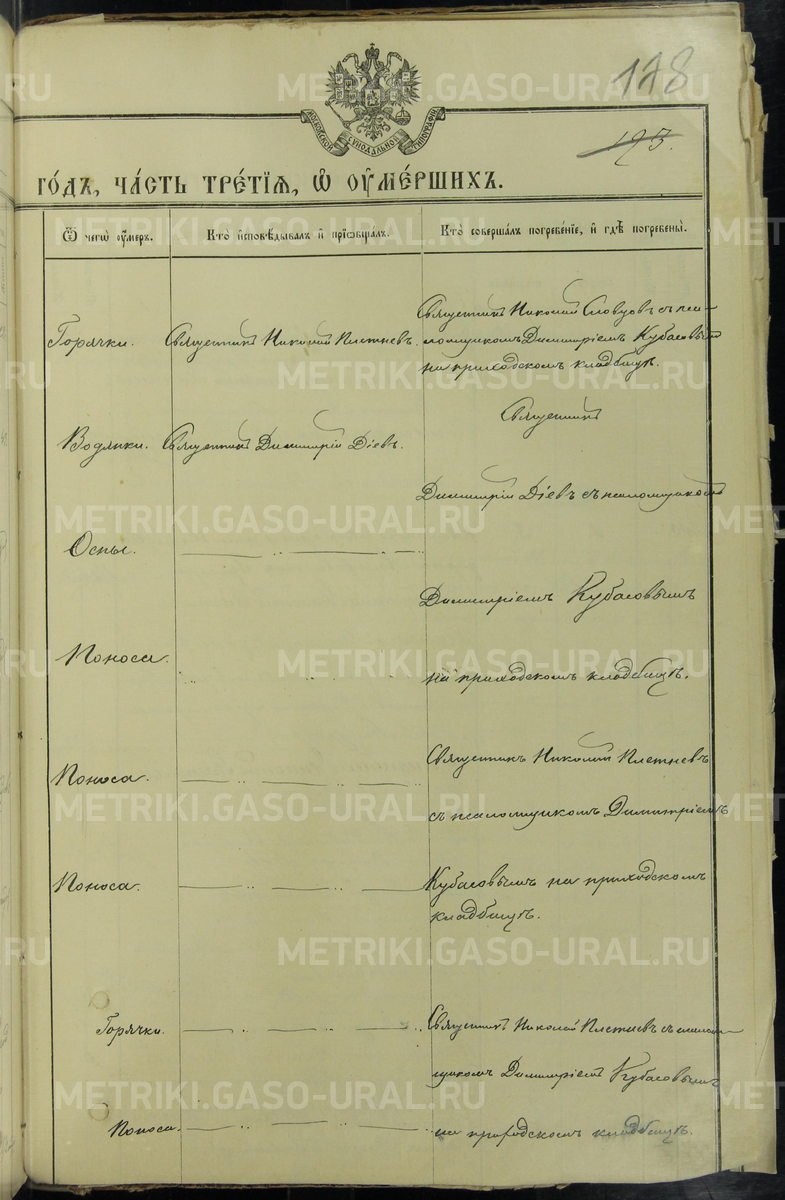 178
193.
МОСКОВСКОЙ СѴНОДАЛЬНОЙ ТИПОГРАФІИ
ГО́ДЪ, ЧА́СТЬ ТРЕ́ТІѦ, Ѿ ОУМЕ́РШИХЪ.
Ѿ чегѡ̀ оу́меръ.
Кто̀ и҆сповѣ́дывалъ и҆ прїѡбща́лъ.
Кто̀ соверша́лъ погребе́нїе, и҆ гдѣ̀ погребены̀.
Горячки.
Священникъ Николай Плетневъ.
Священникъ Николай Словцовъ съ пса-
ломщикомъ Димитріемъ Кубасовымъ
на приходскомъ кладбищѣ.
Водянки.
Священникъ Димитрій Діевъ.
Священникъ
Димитрій Діевъ съ псаломщикомъ
Оспы.
Димитріемъ Кубасовымъ
Поноса.
на приходскомъ кладбищѣ.
Поноса.
Священникъ Николай Плетневъ
съ псаломщикомъ Димитріемъ
Поноса.
Кубасовымъ на приходскомъ
кладбищѣ.
Горячки.
Священникъ Николай Плетневъ съ псалом-
щикомъ Димитріемъ Кубасовымъ
Поноса.
на приходскомъ кладбищѣ.
METRIKI.GASO-URAL.RU